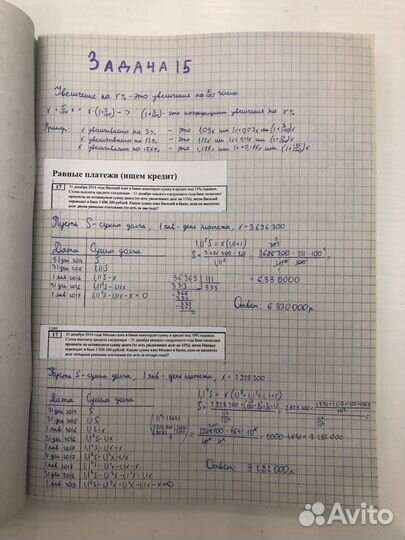 ЗАДАЧА 15
Увеличение на r% - это увеличение на r/100 числа
x + r/100 x = x·(1+r/100) -> (1+r/100) - это коэффициент увеличения на r%
Пример: x увеличивается на 3% - это 1,03x или 1x+0,03x или (1+3/100)x
x увеличивается на 12% - это 1,12x или
x увеличивается на 17,6% - это
Равные платежи (ищем кредит)
17 31 декабря 2014 года Василий взял в банке некоторую сумму в кредит под 11% годовых.
Схема выплаты кредита следующая – 31 декабря каждого следующего года банк начисляет
проценты на оставшуюся сумму долга (то есть увеличивает долг на 11%), затем Василий
переводит в банк 3 696 300 рублей. Какую сумму взял Василий в банке, если он выплатил
долг двумя равными платежами (то есть за два года)?
Пусть S - сумма долга, 1 янв - день платежа, x = 3 696 300
Дата Сумма долга
31 дек 2014 S
31 дек 2015 1,11S
1 янв 2016 1,11S-x
31 дек 2016 1,11²S-1,11x
1 янв 2017 1,11²S-1,11x-x=0
1,11²S = x(1,11+1)
= 6330000
Ответ: 6 330 000 р.
17 31 декабря 2014 года Михаил взял в банке некоторую сумму в кредит под 10% годовых.
Схема выплаты кредита следующая – 31 декабря каждого следующего года банк начисляет
проценты на оставшуюся сумму долга (то есть увеличивает долг на 10%), затем Михаил
переводит в банк 2 928 200 рублей. Какую сумму взял Михаил в банке, если он выплатил
долг четырьмя равными платежами (то есть за четыре года)?
Пусть S - сумма долга, 1 янв - день платежа, x = 2928200
Дата Сумма долга
31 дек 2014 S
31 дек 2015 1,1S
1 янв 2016 1,1S-x
31 дек 2016 1,1²S-1,1x
1 янв 2017 1,1²S-1,1x-x
31 дек 2017 1,1³S-1,1²x-1,1x
1 янв 2018 1,1³S-1,1²x-1,1x-x
31 дек 2018 1,1⁴S-1,1³x-1,1²x-1,1x
1 янв 2019 1,1⁴S-1,1³x-1,1²x-1,1x-x=0
1,1⁴S = x(1,1³+1,1²+1,1+1)
= 2000·4641 = 9 282 000
Ответ: 9 282 000 р.
Avito